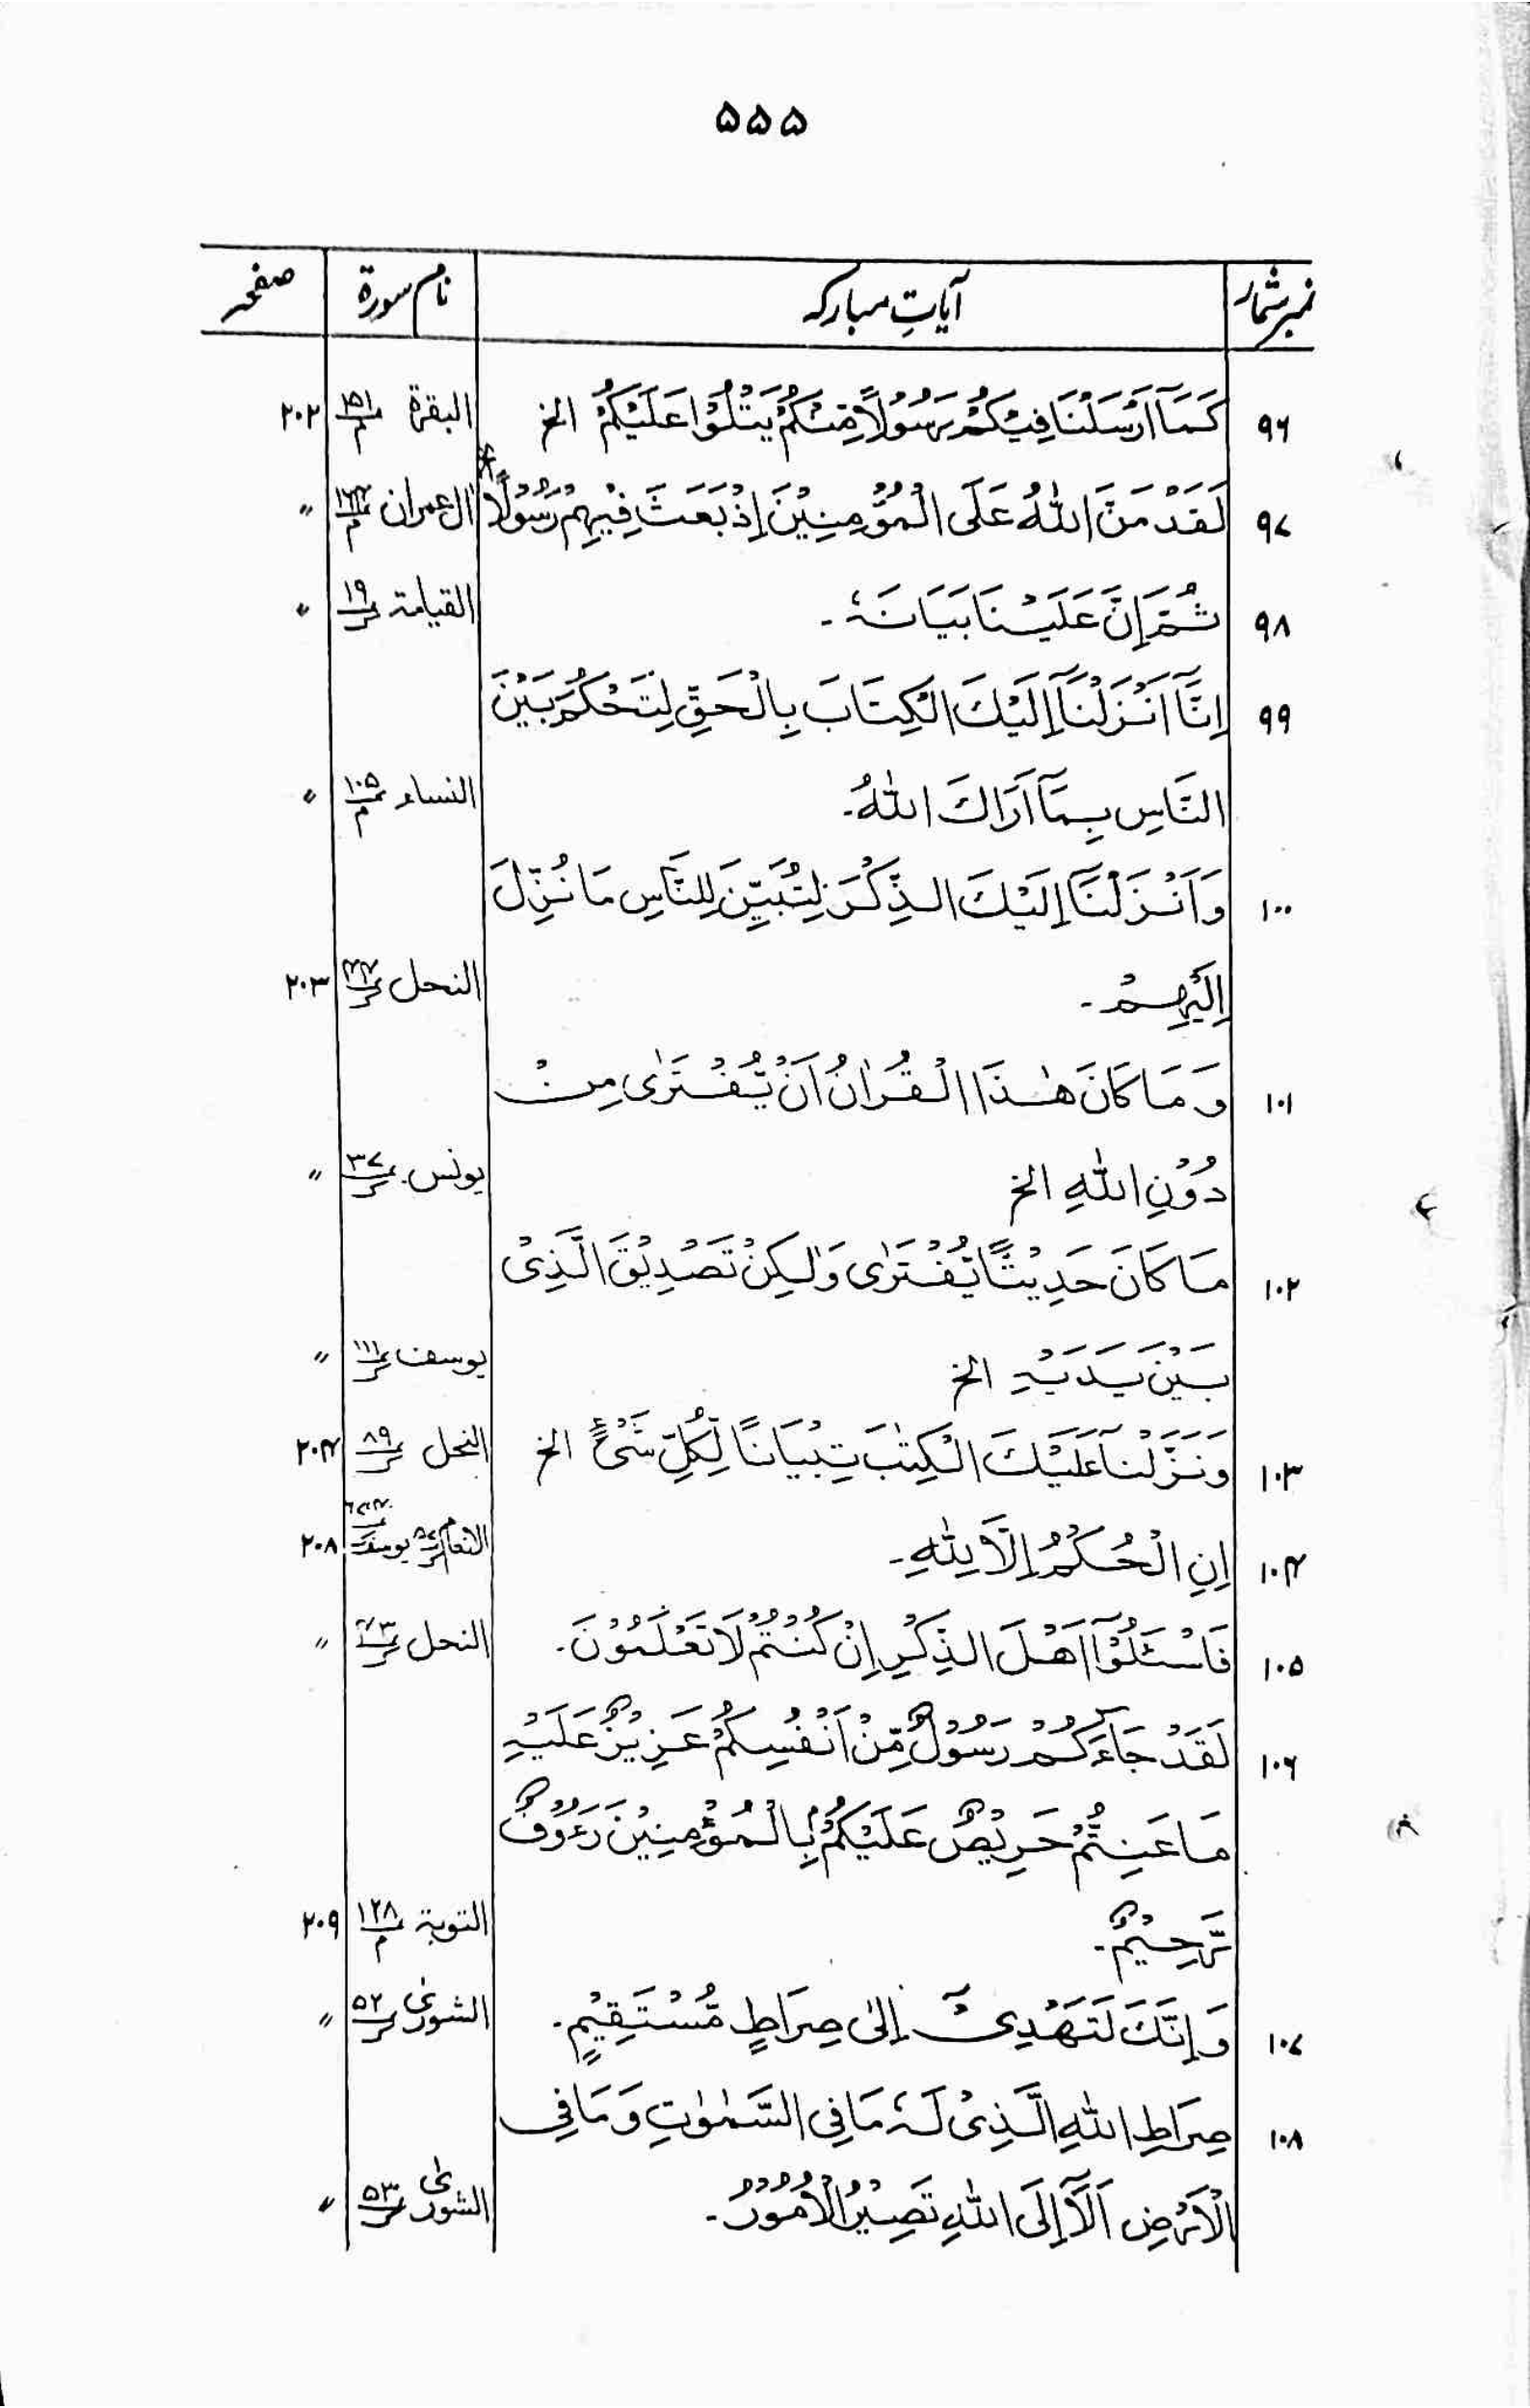 ۵۵۵
نمبر شمار آیاتِ مبارکہ نام سورة صفحہ
۹۶ كَمَآ اَرْسَلْنَا فِيْكُمْ رَسُوْلًا مِّنْكُمْ يَتْلُوْا عَلَيْكُمْ الخ البقرة ۱۵۱/م ۲۰۲
۹۷ لَقَدْ مَنَّ اللّٰهُ عَلَى الْمُؤْمِنِيْنَ اِذْ بَعَثَ فِيْهِمْ رَسُوْلًا اٰل عمران ۱۶۴/م 〃
۹۸ ثُمَّ اِنَّ عَلَيْنَا بَيَانَهٗ ۔ القيامة ۱۹/ک 〃
۹۹ اِنَّآ اَنْزَلْنَآ اِلَيْكَ الْكِتَابَ بِالْحَقِّ لِتَحْكُمَ بَيْنَ
النَّاسِ بِمَآ اَرَاكَ اللّٰهُ۔ النساء ۱۰۵/م 〃
۱۰۰ وَاَنْزَلْنَآ اِلَيْكَ الذِّكْرَ لِتُبَيِّنَ لِلنَّاسِ مَا نُزِّلَ
اِلَيْهِمْ ۔ النحل ۴۴/ک ۲۰۳
۱۰۱ وَمَا كَانَ هٰذَا الْقُرْاٰنُ اَنْ يُّفْتَرٰى مِنْ
دُوْنِ اللّٰهِ الخ يونس ۳۷/ک 〃
۱۰۲ مَا كَانَ حَدِيْثًا يُّفْتَرٰى وَلٰكِنْ تَصْدِيْقَ الَّذِىْ
بَيْنَ يَدَيْهِ الخ يوسف ۱۱۱/ک 〃
۱۰۳ وَنَزَّلْنَا عَلَيْكَ الْكِتٰبَ تِبْيَانًا لِّكُلِّ شَىْءٍ الخ النحل ۸۹/ک ۲۰۴
۱۰۴ اِنِ الْحُكْمُ اِلَّا لِلّٰهِ۔ الانعام ۵۷/ک يوسف ۲۰۸
۱۰۵ فَاسْئَلُوْٓا اَهْلَ الذِّكْرِ اِنْ كُنْتُمْ لَا تَعْلَمُوْنَ۔ النحل ۴۳/ک 〃
۱۰۶ لَقَدْ جَآءَكُمْ رَسُوْلٌ مِّنْ اَنْفُسِكُمْ عَزِيْزٌ عَلَيْهِ
مَا عَنِتُّمْ حَرِيْصٌ عَلَيْكُمْ بِالْمُؤْمِنِيْنَ رَءُوْفٌ
رَّحِيْمٌ۔ التوبة ۱۲۸/م ۲۰۹
۱۰۷ وَاِنَّكَ لَتَهْدِىْٓ اِلٰى صِرَاطٍ مُّسْتَقِيْمٍ۔ الشورىٰ ۵۲/ک 〃
۱۰۸ صِرَاطِ اللّٰهِ الَّذِىْ لَهٗ مَا فِى السَّمٰوٰتِ وَمَا فِى
الْاَرْضِ اَلَآ اِلَى اللّٰهِ تَصِيْرُ الْاُمُوْرُ۔ الشورىٰ ۵۳/ک 〃